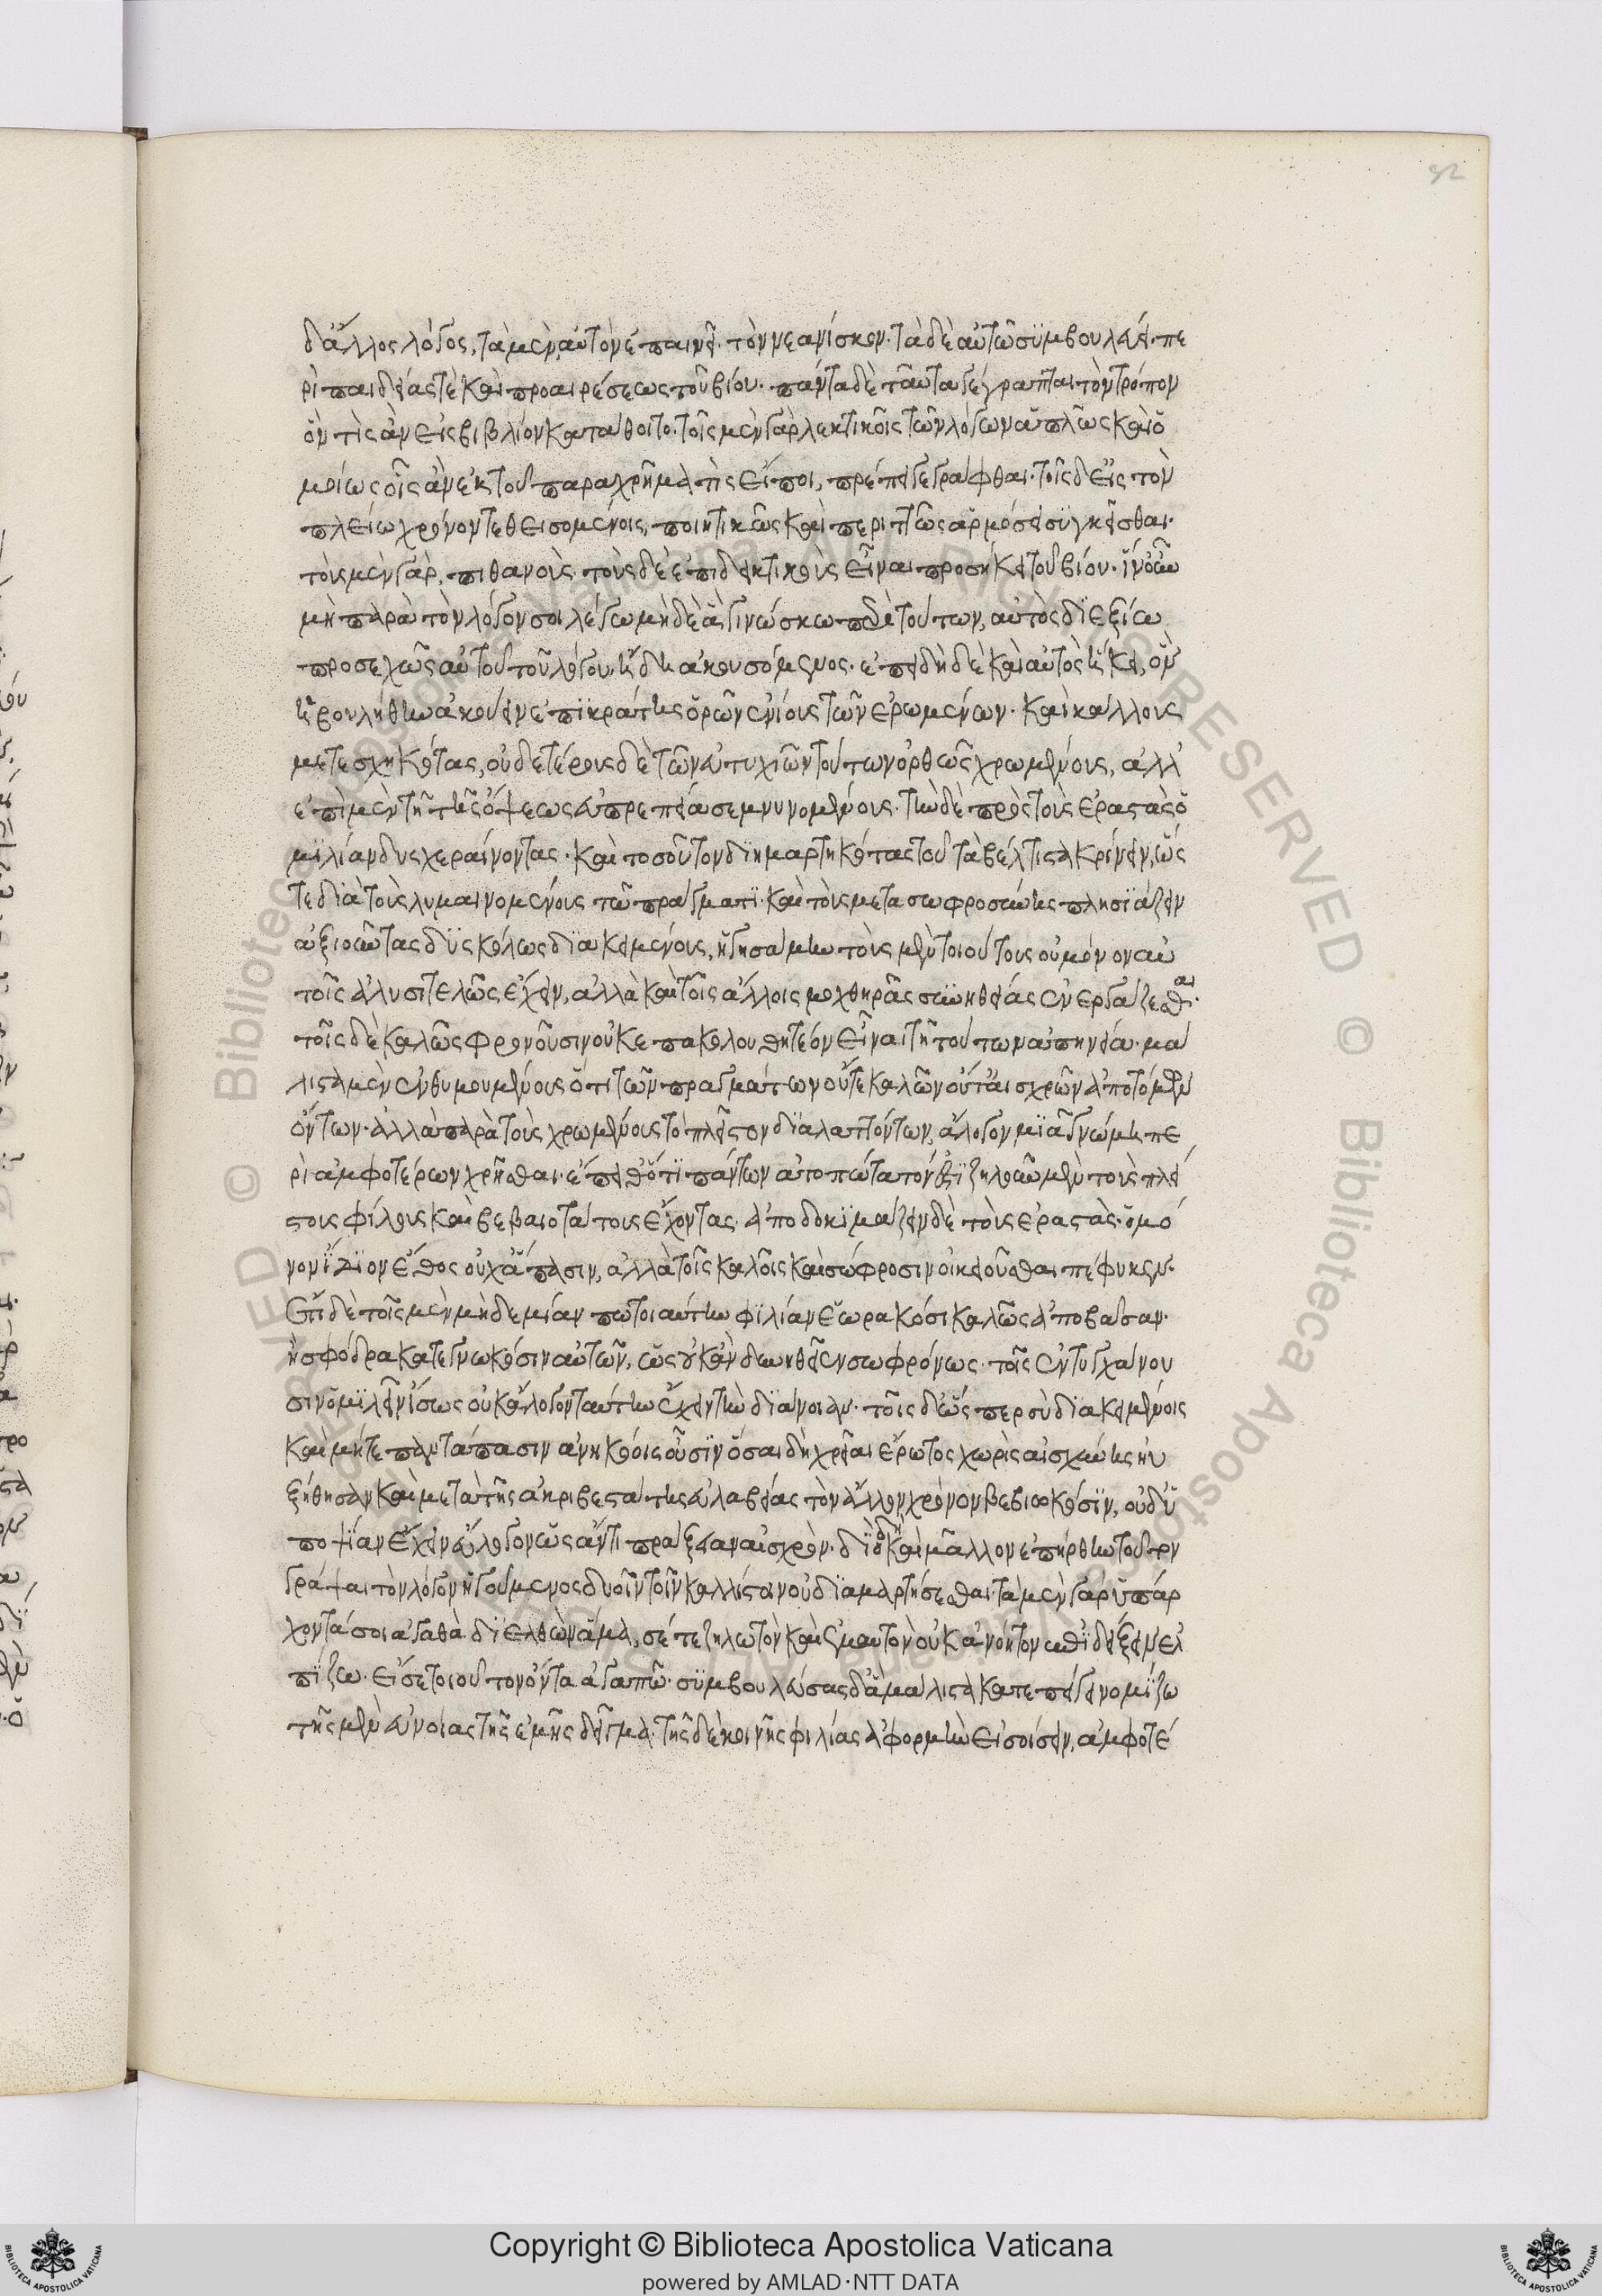 92
δ' ἄλλος λόγος, τὰ μὲν αὐτὸν ἐπαινεῖ τὸν νεανίσκον· τὰ δὲ αὐτῶ συμβουλεύει· πε
ρὶ παιδείας τὲ καὶ προαιρέσεως τοῦ βίου· πάντα δὲ ταῦτα γέγραπται τὸν τρόπον
ὅν τὶς ἂν εἰς βιβλίον καταθοῖτο. τοῖς μὲν γὰρ λεκτικοῖς τῶν λόγων ἁπλῶς καὶ ὁ
μοίως οἷς ἂν ἐκ τοῦ παραχρῆμά τὶς εἴποι, πρέπει γεγράφθαι· τοῖς δ' εἰς τὸν
πλείω χρόνον τεθεισομένοις, ποιητικῶς καὶ περιττῶς ἁρμόσει συγκεῖσθαι·
τοὺς μὲν γὰρ, πιθανοὺς· τοὺς δὲ ἐπιδεικτικοὺς εἶναι προσήκει τοῦ βίου· ἵν' οὖν
μὴ παρὰ τὸν λόγον σοι λέγω μὴ δὲ ἃ γινώσκω περὶ τούτων, αὐτὸς διεξίω
προσεχῶς αὐτοῦ τοῦ λόγου, ἤδη ἀκουσόμενος· ἐπειδὴ δὲ καὶ αὐτὸς ἥκει, οὗ
ἠβουλήθην ἀκούειν ἐπικράτης ὁρῶν ἐνίους τῶν ἐρωμένων· καὶ κάλλους
μετεσχηκότας, οὐδετέροις δὲ τῶν εὐτυχιῶν τούτων ὀρθῶς χρωμένους, ἀλλ'
ἐπὶ μὲν τῇ τῆς ὄψεως εὐπρεπείᾳ σεμνυνομένους· τὴν δὲ πρὸς τοὺς ἐραστὰς ὁ
μιλίαν δυσχεραίνοντας· καὶ τοσοῦτον διημαρτηκότας τοῦ τὰ βέλτιστα κρίνειν, ὥσ
τε διὰ τοὺς λυμαινομένους τῶ πράγματι· καὶ τοὺς μετὰ σωφροσύνης πλησιάζειν
ἀξιοῦντας δυσκόλως διακειμένους, ἡγησάμην τοὺς μὲν τοιούτους οὐ μόνον αὑ
τοῖς ἀλυσιτελῶς ἔχειν, ἀλλὰ καὶ τοῖς ἄλλοις μοχθηρὰς συνηθείας ἐνεργάζεσθαι.
τοῖς δὲ καλῶς φρονοῦσιν οὐκ ἐπακολουθητέον εἶναι τῇ τούτων ἀπηνείᾳ· μά
λιστα μὲν ἐνθυμουμένους ὅτι τῶν πραγμάτων οὔτε καλῶν οὔτ' αἰσχρῶν ἀποτόμ
ὄντων· ἀλλὰ παρὰ τοὺς χρωμένους τὸ πλεῖστον διαλαττόντων, ἄλογον μιᾷ γνώμῃ πε
ρὶ ἀμφοτέρων χρῆσθαι· ἔπειθ' ὅτι πάντων ἀτοπώτατόν ἐστι ζηλοῦν μὲν τοὺς πλεί
στους φίλους καὶ βεβαιοτάτους ἔχοντας. ἀποδοκιμάζειν δὲ τοὺς ἐραστὰς· ὃ μό
νον ἴδιον ἔθος οὐχ ἅπασιν, ἀλλὰ τοῖς καλοῖς καὶ σώφροσιν οἰκειοῦσθαι πέφυκεν·
ἔτι δὲ τοῖς μὲν μηδεμίαν πω τοιαύτην φιλίαν ἑωρακόσι καλῶς ἀποβᾶσαν·
ἢ σφόδρα κατεγνωκόσιν αὑτῶν, ὡς οὐκ ἂν δυνηθεῖεν σωφρόνως τοῖς ἐντυγχάνου
σιν ὁμιλεῖν ἴσως οὐκ ἄλογον ταύτην ἔχειν τὴν διάνοιαν· τοῖς δ' ὥσπερ σὺ διακειμένοις
καὶ μήτε παντάπασιν ἀνηκόοις οὖσιν ὅσαι δὴ χρεῖαι ἔρωτος χωρὶς αἰσχύνης ηὐ
ξήθησαν καὶ μετὰ τῆς ἀκριβεστάτης εὐλαβείας τὸν ἄλλον χρόνον βεβιωκόσιν, οὐδ' ὑ
ποψίαν ἔχειν εὔλογον ὥς ἄν τι πράξειαν αἰσχρὸν. διὸ δὴ καὶ μᾶλλον ἐπήρθην τοῦτον
γράψαι τὸν λόγον ἡγούμενος δυοῖν τοῖν καλλίστοιν οὐ διαμαρτήσεσθαι τὰ μὲν γὰρ ὑπάρ
χοντά σοι ἀγαθὰ διελθὼν ἅμα, σέ τε ζηλωτὸν καὶ ἐμαυτὸν οὐκ ἀνόητον ἐπιδείξειν ἐλ
πίζω· εἴ σε τοιοῦτον ὄντα ἀγαπῶ· συμβουλεύσας δ' ἃ μάλιστα κατεπείγει νομίζω
τῆς μὲν εὐνοίας τῆς ἐμῆς δεῖγμα· τῆς δὲ κοινῆς φιλίας ἀφορμὴν εἰσοίσειν, ἀμφοτέ
Copyright © Biblioteca Apostolica Vaticana
powered by AMLAD·NTT DATA